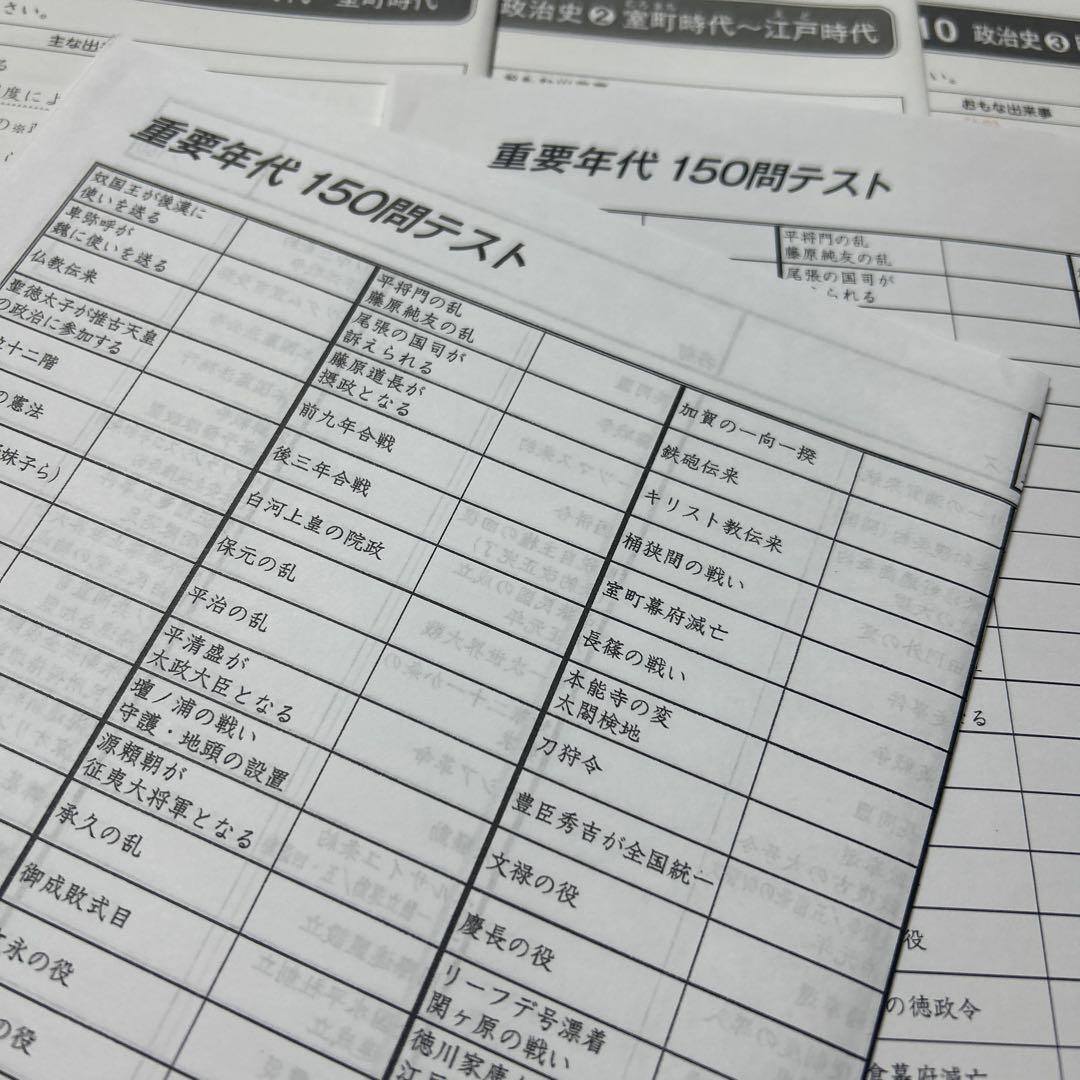 室町時代
さい。
主な出来
政治史❷ 室町時代～江戸時代
10 政治史❸
い。
おもな出来事
重要年代 150問テスト
奴国王が後漢に
使いを送る
卑弥呼が
魏に使いを送る
仏教伝来
聖徳太子が推古天皇
の政治に参加する
十二階
の憲法
妹子ら)
平将門の乱
藤原純友の乱
尾張の国司が
訴えられる
藤原道長が
摂政となる
前九年合戦
後三年合戦
白河上皇の院政
保元の乱
平治の乱
平清盛が
太政大臣となる
壇ノ浦の戦い
守護・地頭の設置
源頼朝が
征夷大将軍となる
承久の乱
御成敗式目
永の役
の役
加賀の一向一揆
鉄砲伝来
キリスト教伝来
桶狭間の戦い
室町幕府滅亡
長篠の戦い
本能寺の変
太閤検地
刀狩令
豊臣秀吉が全国統一
文禄の役
慶長の役
リーフデ号漂着
関ヶ原の戦い
徳川家康
重要年代 150問テスト
平将門の乱
藤原純友の乱
尾張の国司が
られる
る
役
の徳政令
幕府滅亡